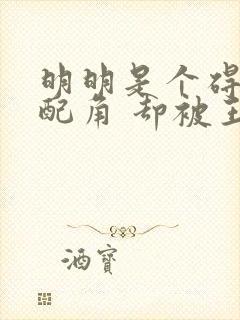 明明是个碍
配角 却被主
酒寶